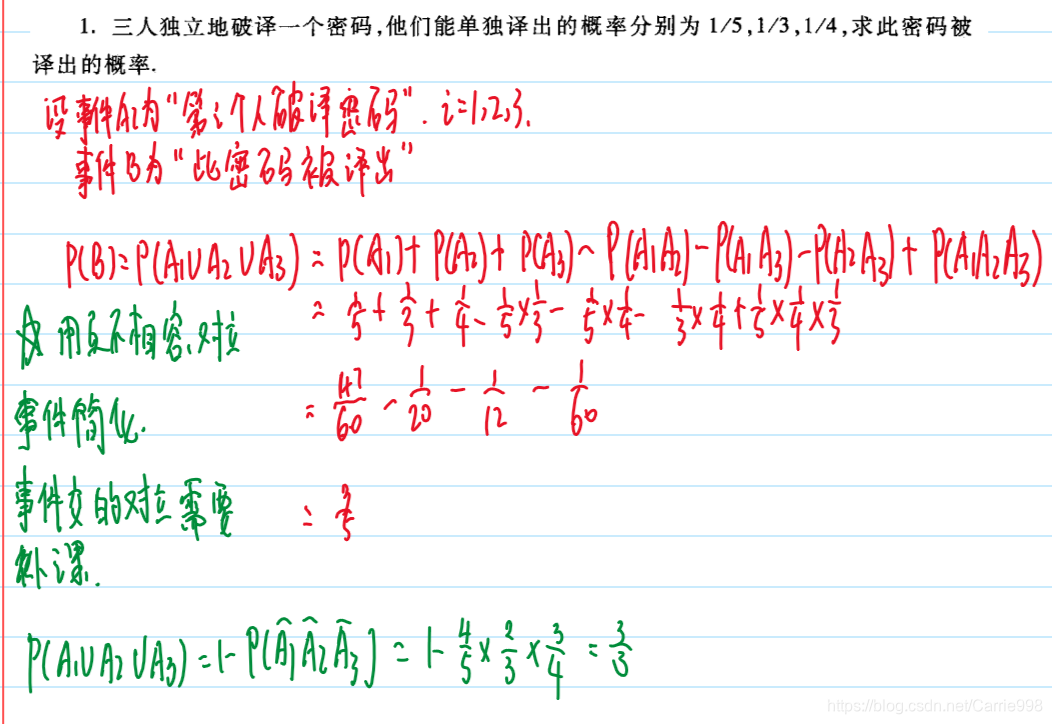 1. 三人独立地破译一个密码,他们能单独译出的概率分别为 1/5,1/3,1/4,求此密码被
译出的概率.
设事件Ai为“第i个人破译密码”. i=1,2,3.
事件B为“此密码被译出”
P(B)=P(A₁∪A₂∪A₃) = P(A₁)+P(A₂)+P(A₃)-P(A₁A₂)-P(A₁A₃)-P(A₂A₃)+P(A₁A₂A₃)
= 1/5+1/3+1/4-1/5×1/3-1/5×1/4-1/3×1/4+1/5×1/4×1/3
☆用互不相容、对立
事件简化.
= 47/60-1/20-1/12-1/60
事件交的对立需要
补课.
= 3/5
P(A₁∪A₂∪A₃)=1-P(A̅₁A̅₂A̅₃)=1-4/5×2/3×3/4=3/3
https://blog.csdn.net/Carrie998